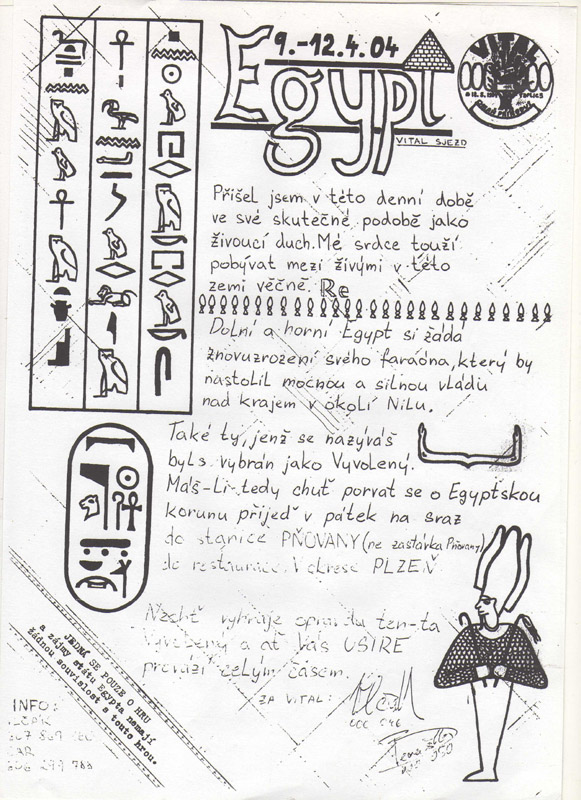 9.-12.4.04
Egypt
VITAL SJEZD
VITAL
Přišel jsem v této denní době
ve své skutečné podobě jako
živoucí duch. Mé srdce touží
pobývat mezi živými v této
zemi věčné. Re
Dolní a horní Egypt si žádá
znovuzrození svého faraóna, který by
nastolil mocnou a silnou vládu
nad krajem v okolí Nilu.
Také ty, jenž se nazýváš
byls vybrán jako Vyvolený.
Máš-Li-tedy chuť porvat se o Egyptskou
korunu přijeď v pátek na sraz
do stanice PŇOVANY (ne zastávka Pňovany)
do restaurace. V okrese PLZEŇ
Nechť vyhraje opravdu ten-ta
Vyvolený a ať Vás USIRE
provází celým časem.
ZA VITAL:
JEDNÁ SE POUZE O HRU
a zájmy státu Egypta nemají
žádnou souvislost s touto hrou.
INFO: